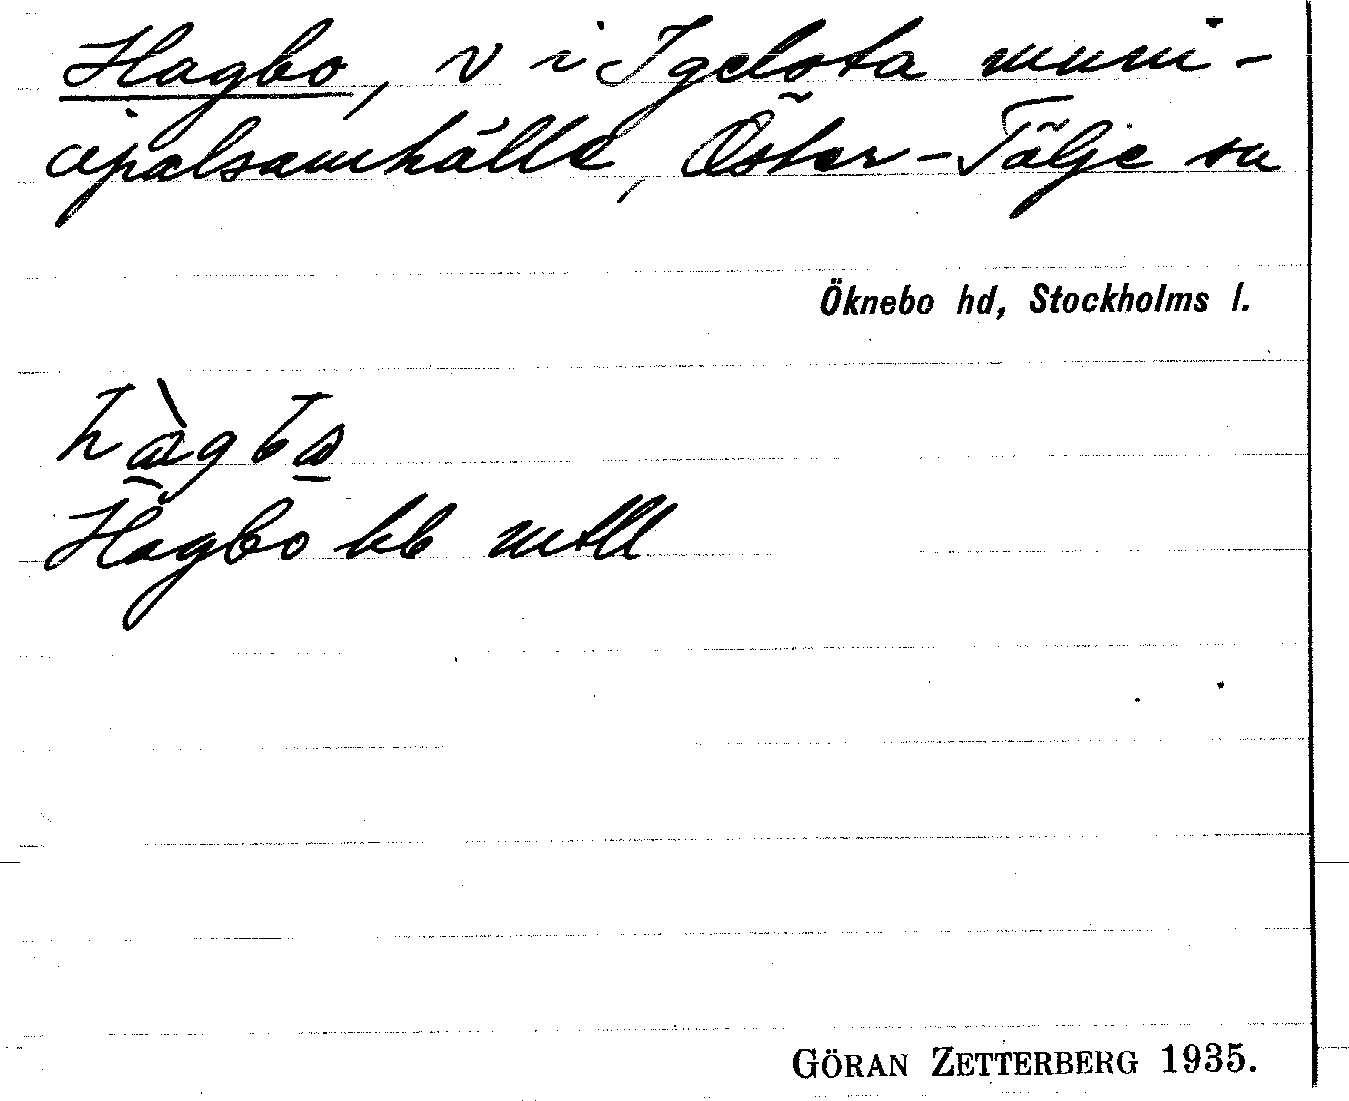 Hagbo, v i Igelsta muni-
cipalsamhälle, Öster-Tälje sn
Öknebo hd, Stockholms l.
Hagbo bb mtll
GÖRAN ZETTERBERG 1935.